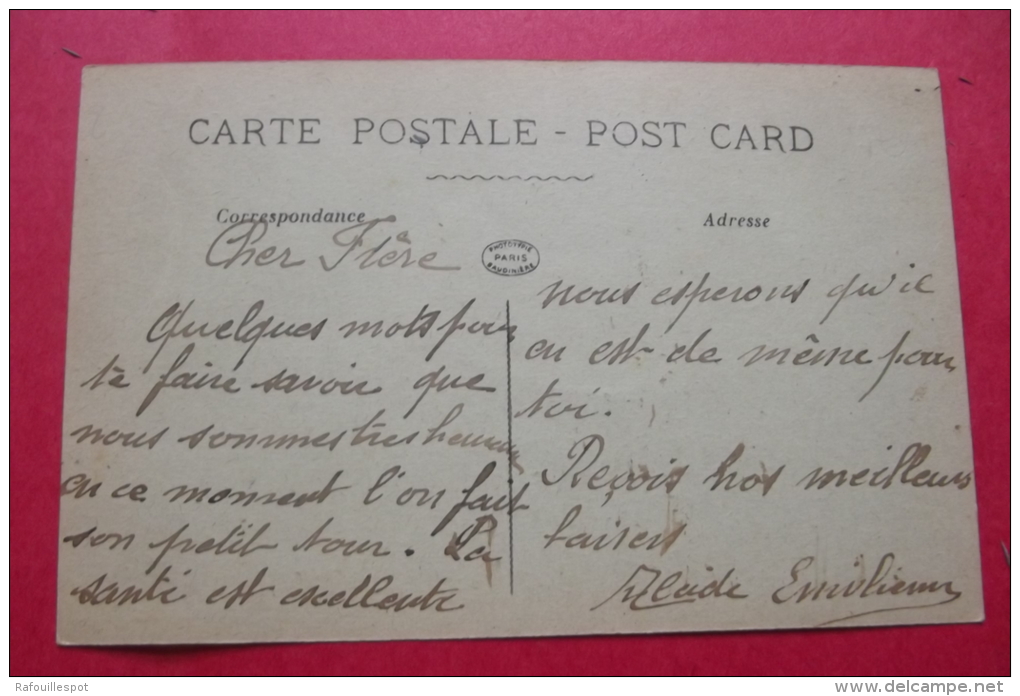 CARTE POSTALE - POST CARD
Correspondance
Adresse
PHOTOTYPIE
PARIS
BAUDINIÈRE
Cher Frère
Quelques mots pour
te faire savoir que
nous sommes tres heureux
en ce moment l'on fait
son petit tour. La
santé est excellente
nous esperons qu'il
en est de même pour
toi.
Reçois nos meilleurs
baisers
Emilienne
Rafouillespot
www.delcampe.net